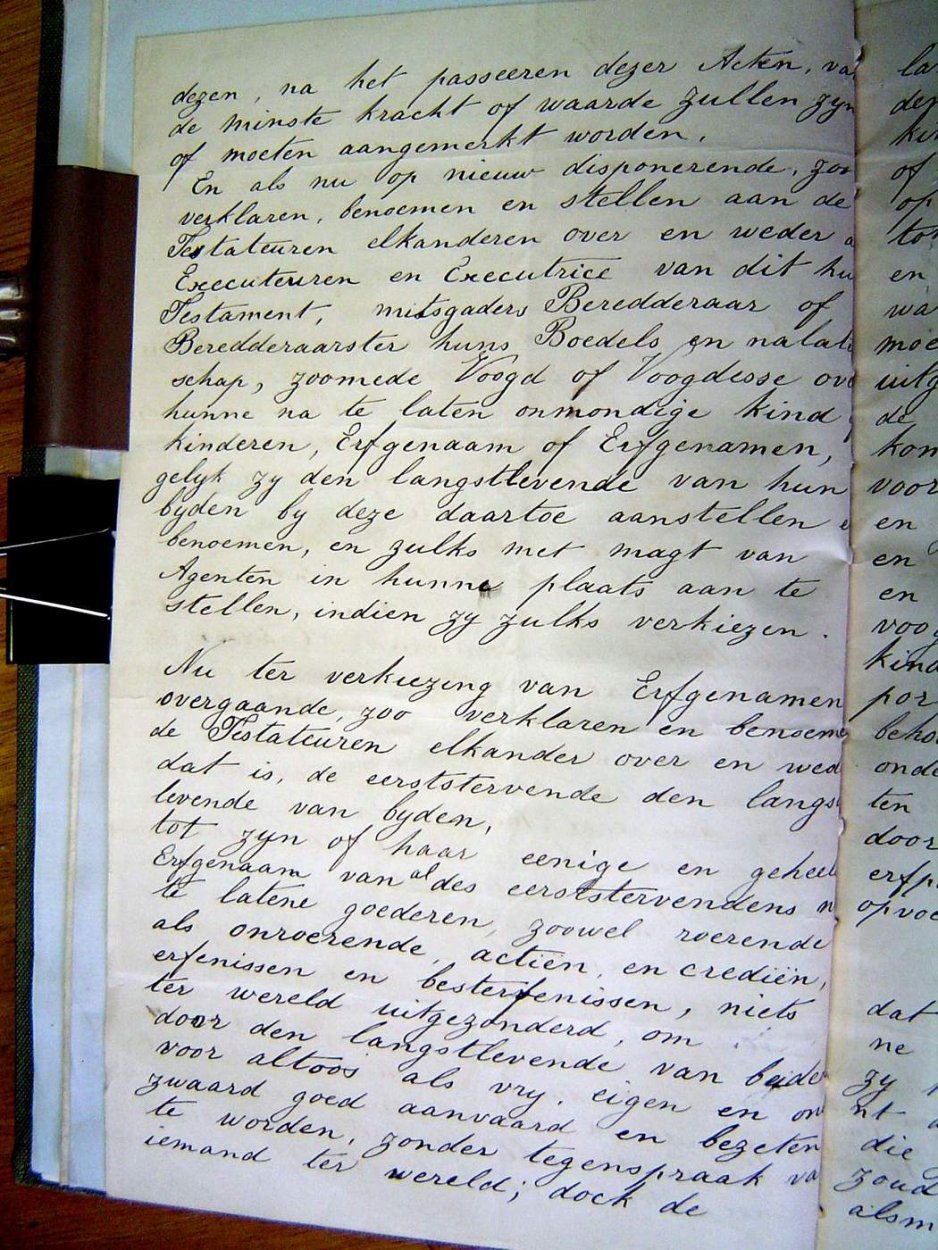 dezen, na het passeeren dezer Acten, va
de minste kracht of waarde zullen zyn
of moeten aangemerkt worden.
En als nu op nieuw disponerende, zoo
verklaren, benoemen en stellen aan de
Testateuren elkanderen over en weder
Executeuren en Executrice van dit hu
Testament, mitsgaders Beredderaar of
Beredderaarster huns Boedels en nalat
schap, zoomede Voogd of Voogdesse ove
hunne na te laten onmondige kind
kinderen, Erfgenaam of Erfgenamen,
gelyk zy den langstlevende van hun
byden by deze daartoe aanstellen
benoemen, en zulks met magt van
Agenten in hunne plaats aan te
stellen, indien zy zulks verkiezen.
Nu ter verkiezing van Erfgenamen
overgaande, zoo verklaren en benoeme
de Testateuren elkander over en wed
dat is, de eerststervende den langs
levende van byden,
tot zyn of haar eenige en geheel
Erfgenaam van al des eerststervendens n
te latene goederen, zoowel roerende
als onroerende, actien, en crediën,
erfenissen en besterfenissen, niets
ter wereld uitgezonderd, om
door den langstlevende van beide
voor altoos als vry, eigen en on
zwaard goed aanvaard en bezeten
te worden, zonder tegenspraak va
iemand ter wereld; doch de
la
der
kin
of
op
tot
en
wa
moe
uitg
de
kom
voor
en
en
en
voog
kind
por
beho
onde
ten
door
erfp
opvoe
dat
ne
zy
nt
die
zoud
alsm